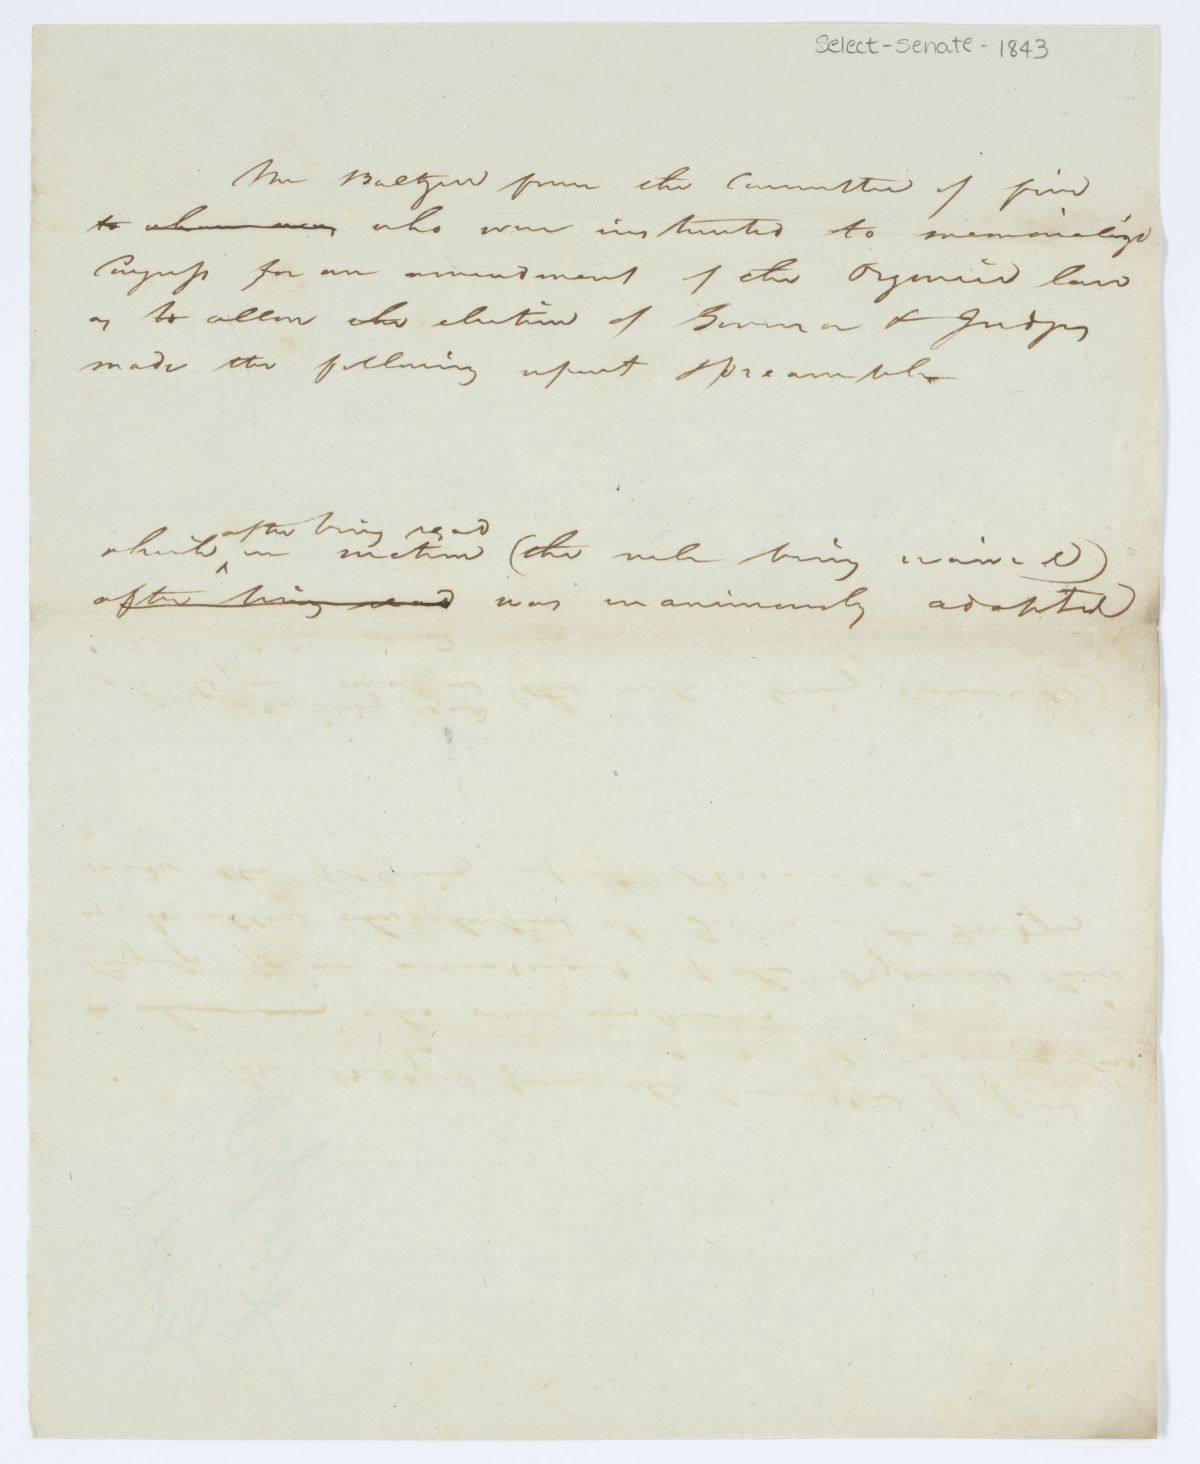 Select-Senate-1843
Mr Baltzell from the Committee of five
to whom was who were instructed to memorialize
Congress for an amendment of the Organic law
as to allow the election of Governor & Judges
made the following report & preamble
after being read
which on motion (the rule being waived)
after being read was unanimously adopted